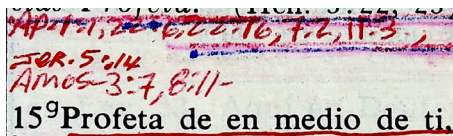 AP-1:1, 22:6, 22:16, 7:2, 11:3,
JER. 5:14
AMOS-3:7, 8:11-
15⁹Profeta de en medio de ti,